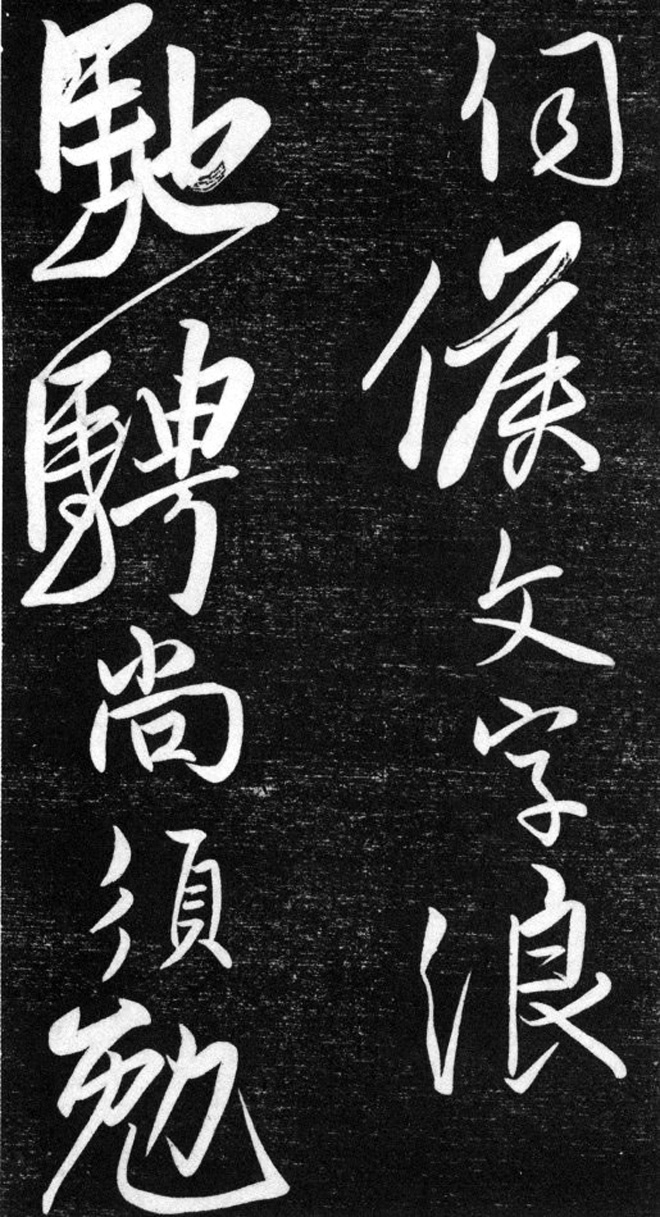 伺候文字浪
馳騁尚須勉